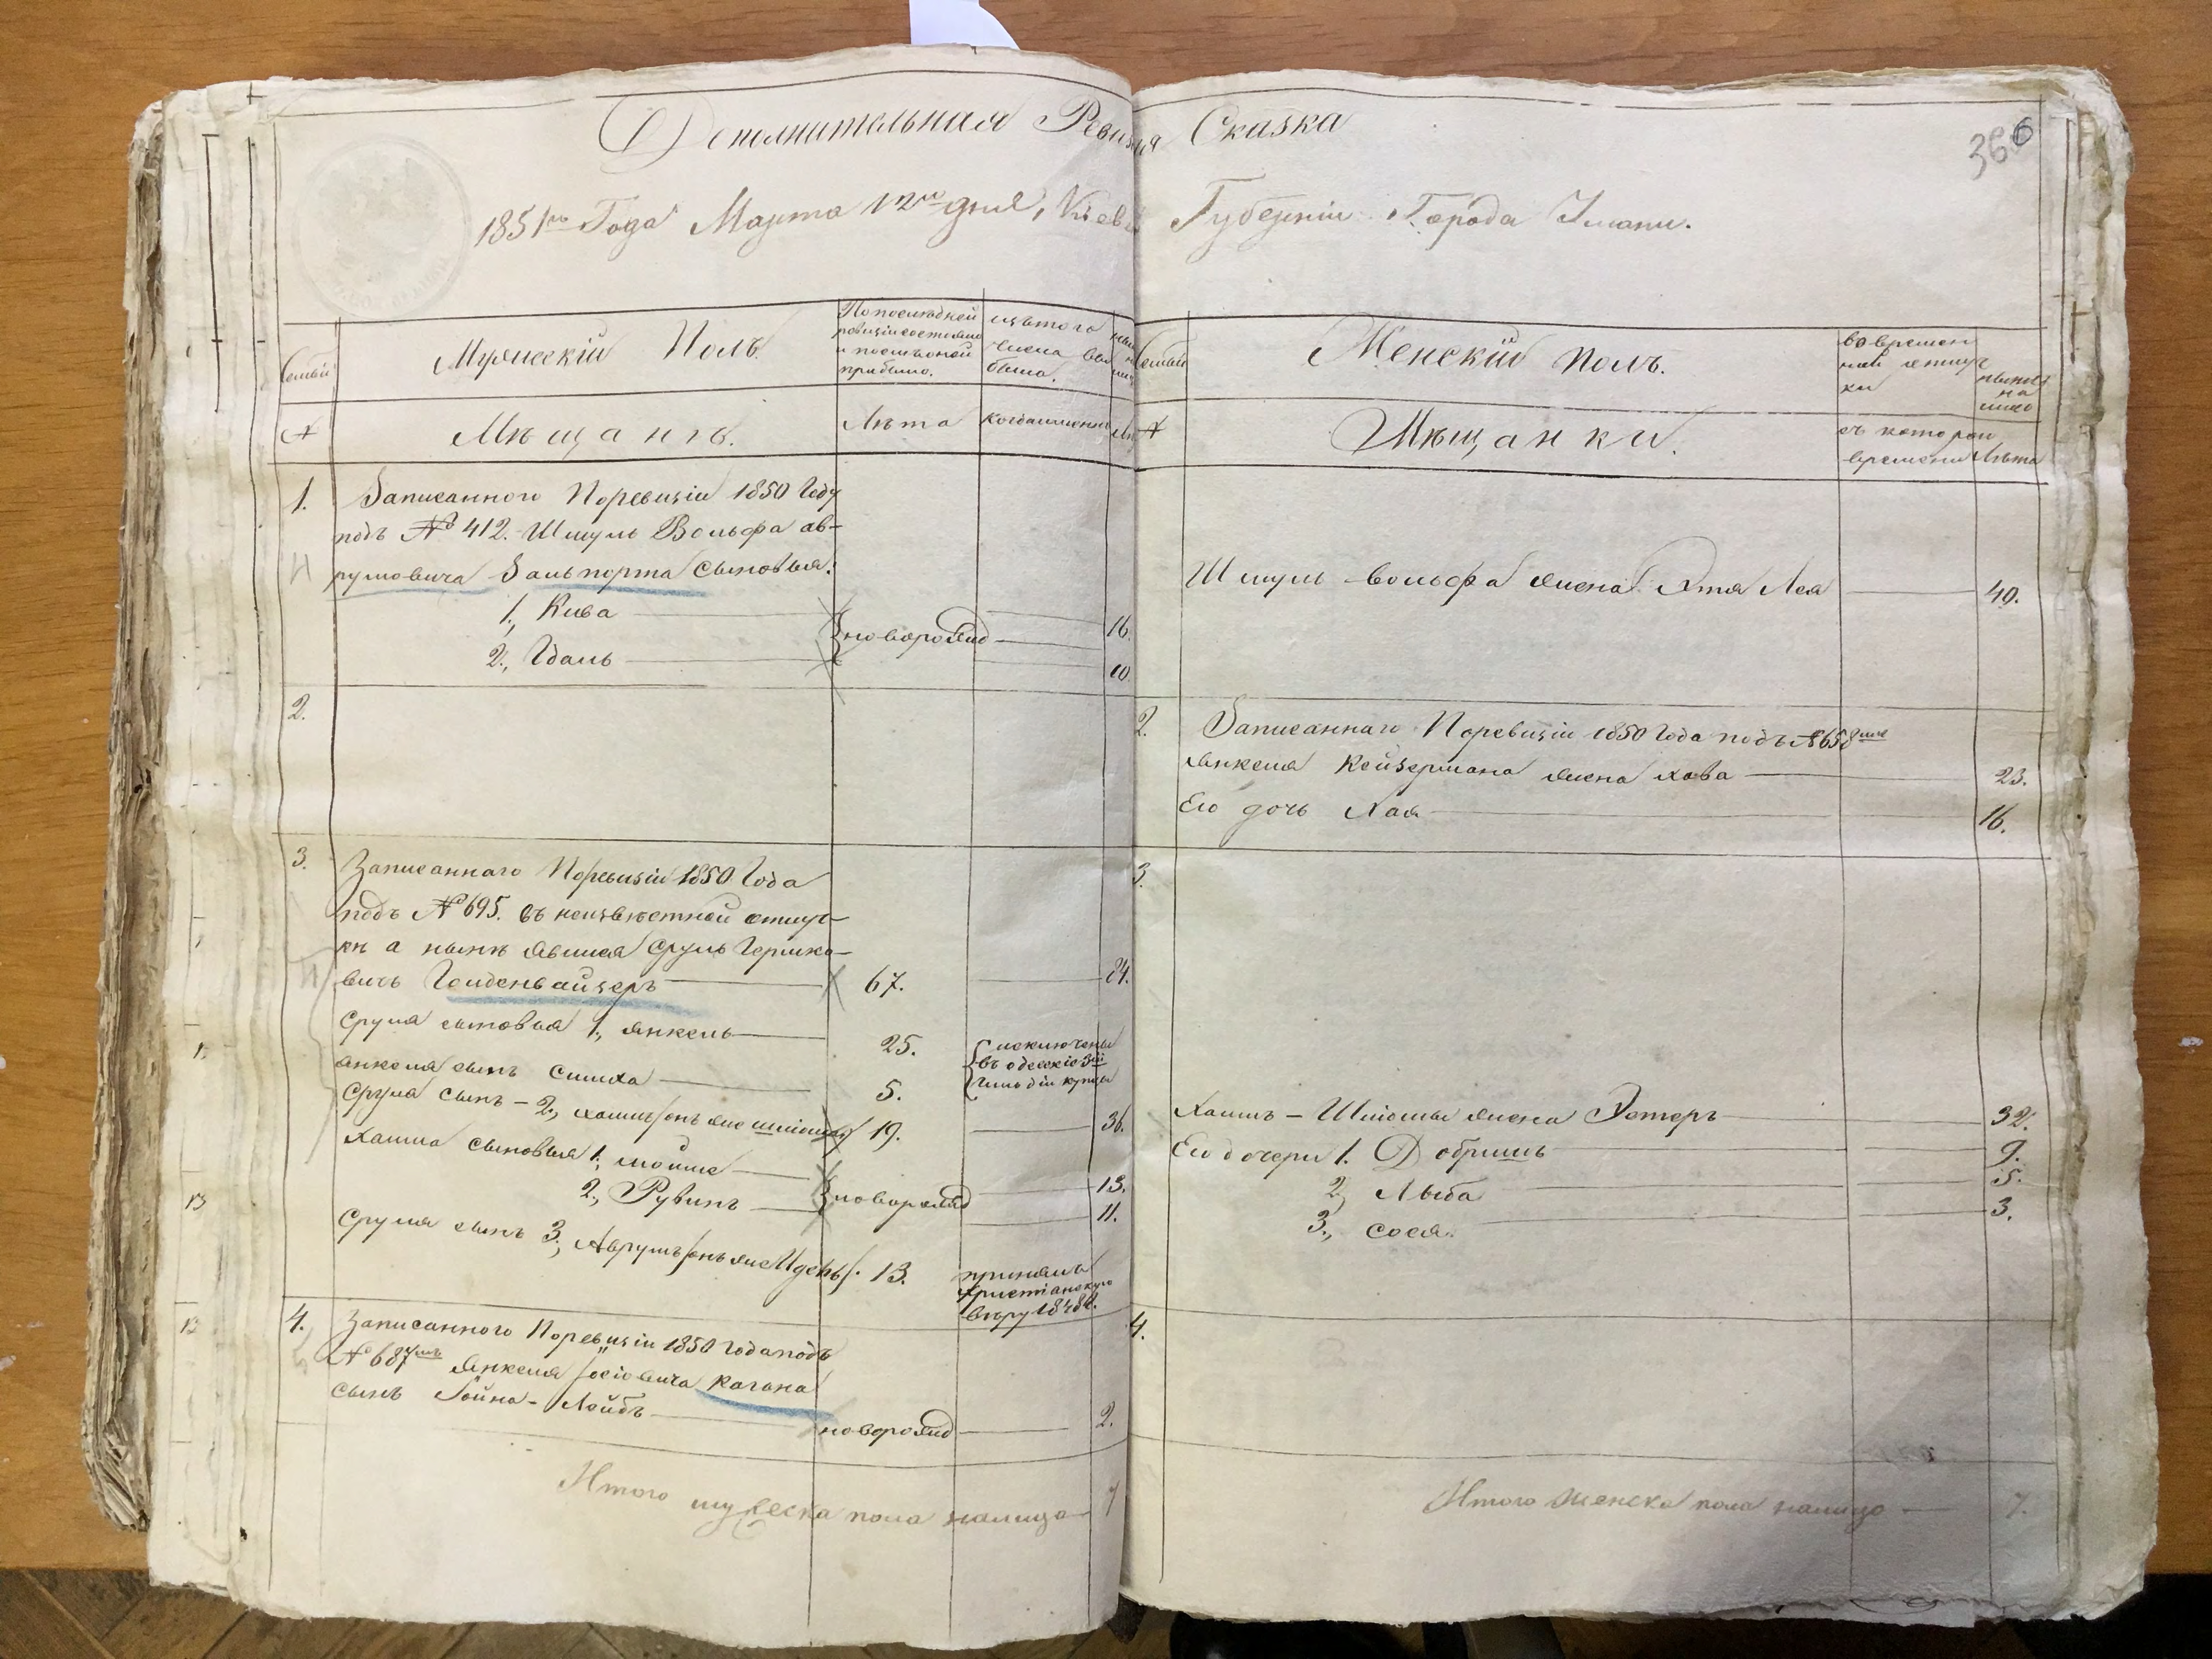 Дополнительная Ревизкая Сказка
366
1851го Года Марта 12го дня, Киев Губерніи Города Умани.
Семьи
Мужескій Полъ
По последней
ревизіи состояло
и после оной
прибыло.
изъ того
числа вы
было.
№
Мѣщанъ.
Лѣта
когда именно
1. Записанного Поревизіи 1850 Году
подъ № 412. Шмуль Вольфа Ав-
румовича Гальпорта сыновья:
1., Кива
новорожд 16.
2., Гдаль
10.
2.
3. Записаннаго Поревизіи 1850 Года
подъ № 695. въ неизвѣстной отлуч-
кѣ а нынѣ явился Сруль Гершко-
вичъ Гольденвайзеръ 67. 84.
Сруля сыновья 1., Янкель 25.
исключены
въ одесскіе 3й
гильдіи купцы
Янкеля сынъ Симха 5.
Сруля сынъ - 2., Хаимъ/онъ же Шліома/ 19. 36.
Хаима сыновья 1., Мойше 13.
новорожд
2., Рувинъ 11.
Сруля сынъ 3., Аврумъ/онъ же Идель/. 13.
принялъ
Христіанскую
вѣру 1848г.
4. Записанного Поревизіи 1850 Года подъ
№ 687мъ Янкеля Іосіовича Кагана
сынъ Гойна-Лейбъ
новорожд 2.
Итого мужеска пола налицо 7
Семьи
Женскій Полъ.
во времен
ной отлуч
ки
нынѣ
на
лицо
№
Мѣщанки.
съ которои
времени
Лѣта
Шмуль-Вольфа жена Этя Лея 40.
2. Записаннаго Поревизіи 1850 Года подъ № 658мъ
Янкеля Кейзермана жена Хава 23.
Его дочь Хая 16.
3.
Хаимъ-Шліомы жена Эстеръ 32.
Его дочери 1. Добришъ 9.
2, Лыба 5.
3., Сося. 3.
4.
Итого женска пола налицо 7.